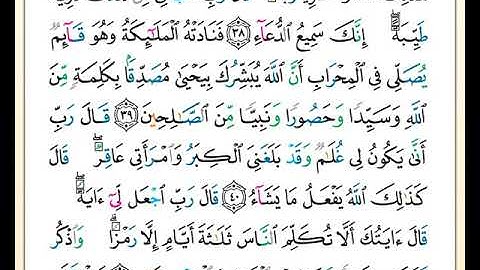 طَيِّبَةً ۖ إِنَّكَ سَمِيعُ الدُّعَآءِ ﴿٣٨﴾ فَنَادَتْهُ الْمَلَـٰٓئِكَةُ وَهُوَ قَآئِمٌ
يُصَلِّى فِى الْمِحْرَابِ أَنَّ اللَّهَ يُبَشِّرُكَ بِيَحْيَىٰ مُصَدِّقًۢا بِكَلِمَةٍ مِّنَ
اللَّهِ وَسَيِّدًا وَحَصُورًا وَنَبِيًّا مِّنَ الصَّـٰلِحِينَ ﴿٣٩﴾ قَالَ رَبِّ
أَنَّىٰ يَكُونُ لِى غُلَـٰمٌ وَقَدْ بَلَغَنِىَ الْكِبَرُ وَامْرَأَتِى عَاقِرٌ ۖ قَالَ
كَذَٰلِكَ اللَّهُ يَفْعَلُ مَا يَشَآءُ ﴿٤٠﴾ قَالَ رَبِّ اجْعَل لِّىٓ ءَايَةً ۖ
قَالَ ءَايَتُكَ أَلَّا تُكَلِّمَ النَّاسَ ثَلَـٰثَةَ أَيَّامٍ إِلَّا رَمْزًا ۗ وَاذْكُر